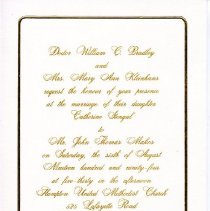 Doctor William C. Bradley
and
Mrs. Mary Ann Klinkans
request the honour of your presence
at the marriage of their daughter
Catherine
to
Mr. John Thomas Maher
on Saturday, the sixth of August
Nineteen hundred and ninety-four
at five thirty in the afternoon
Hampton United Methodist Church
525 Lafayette Road